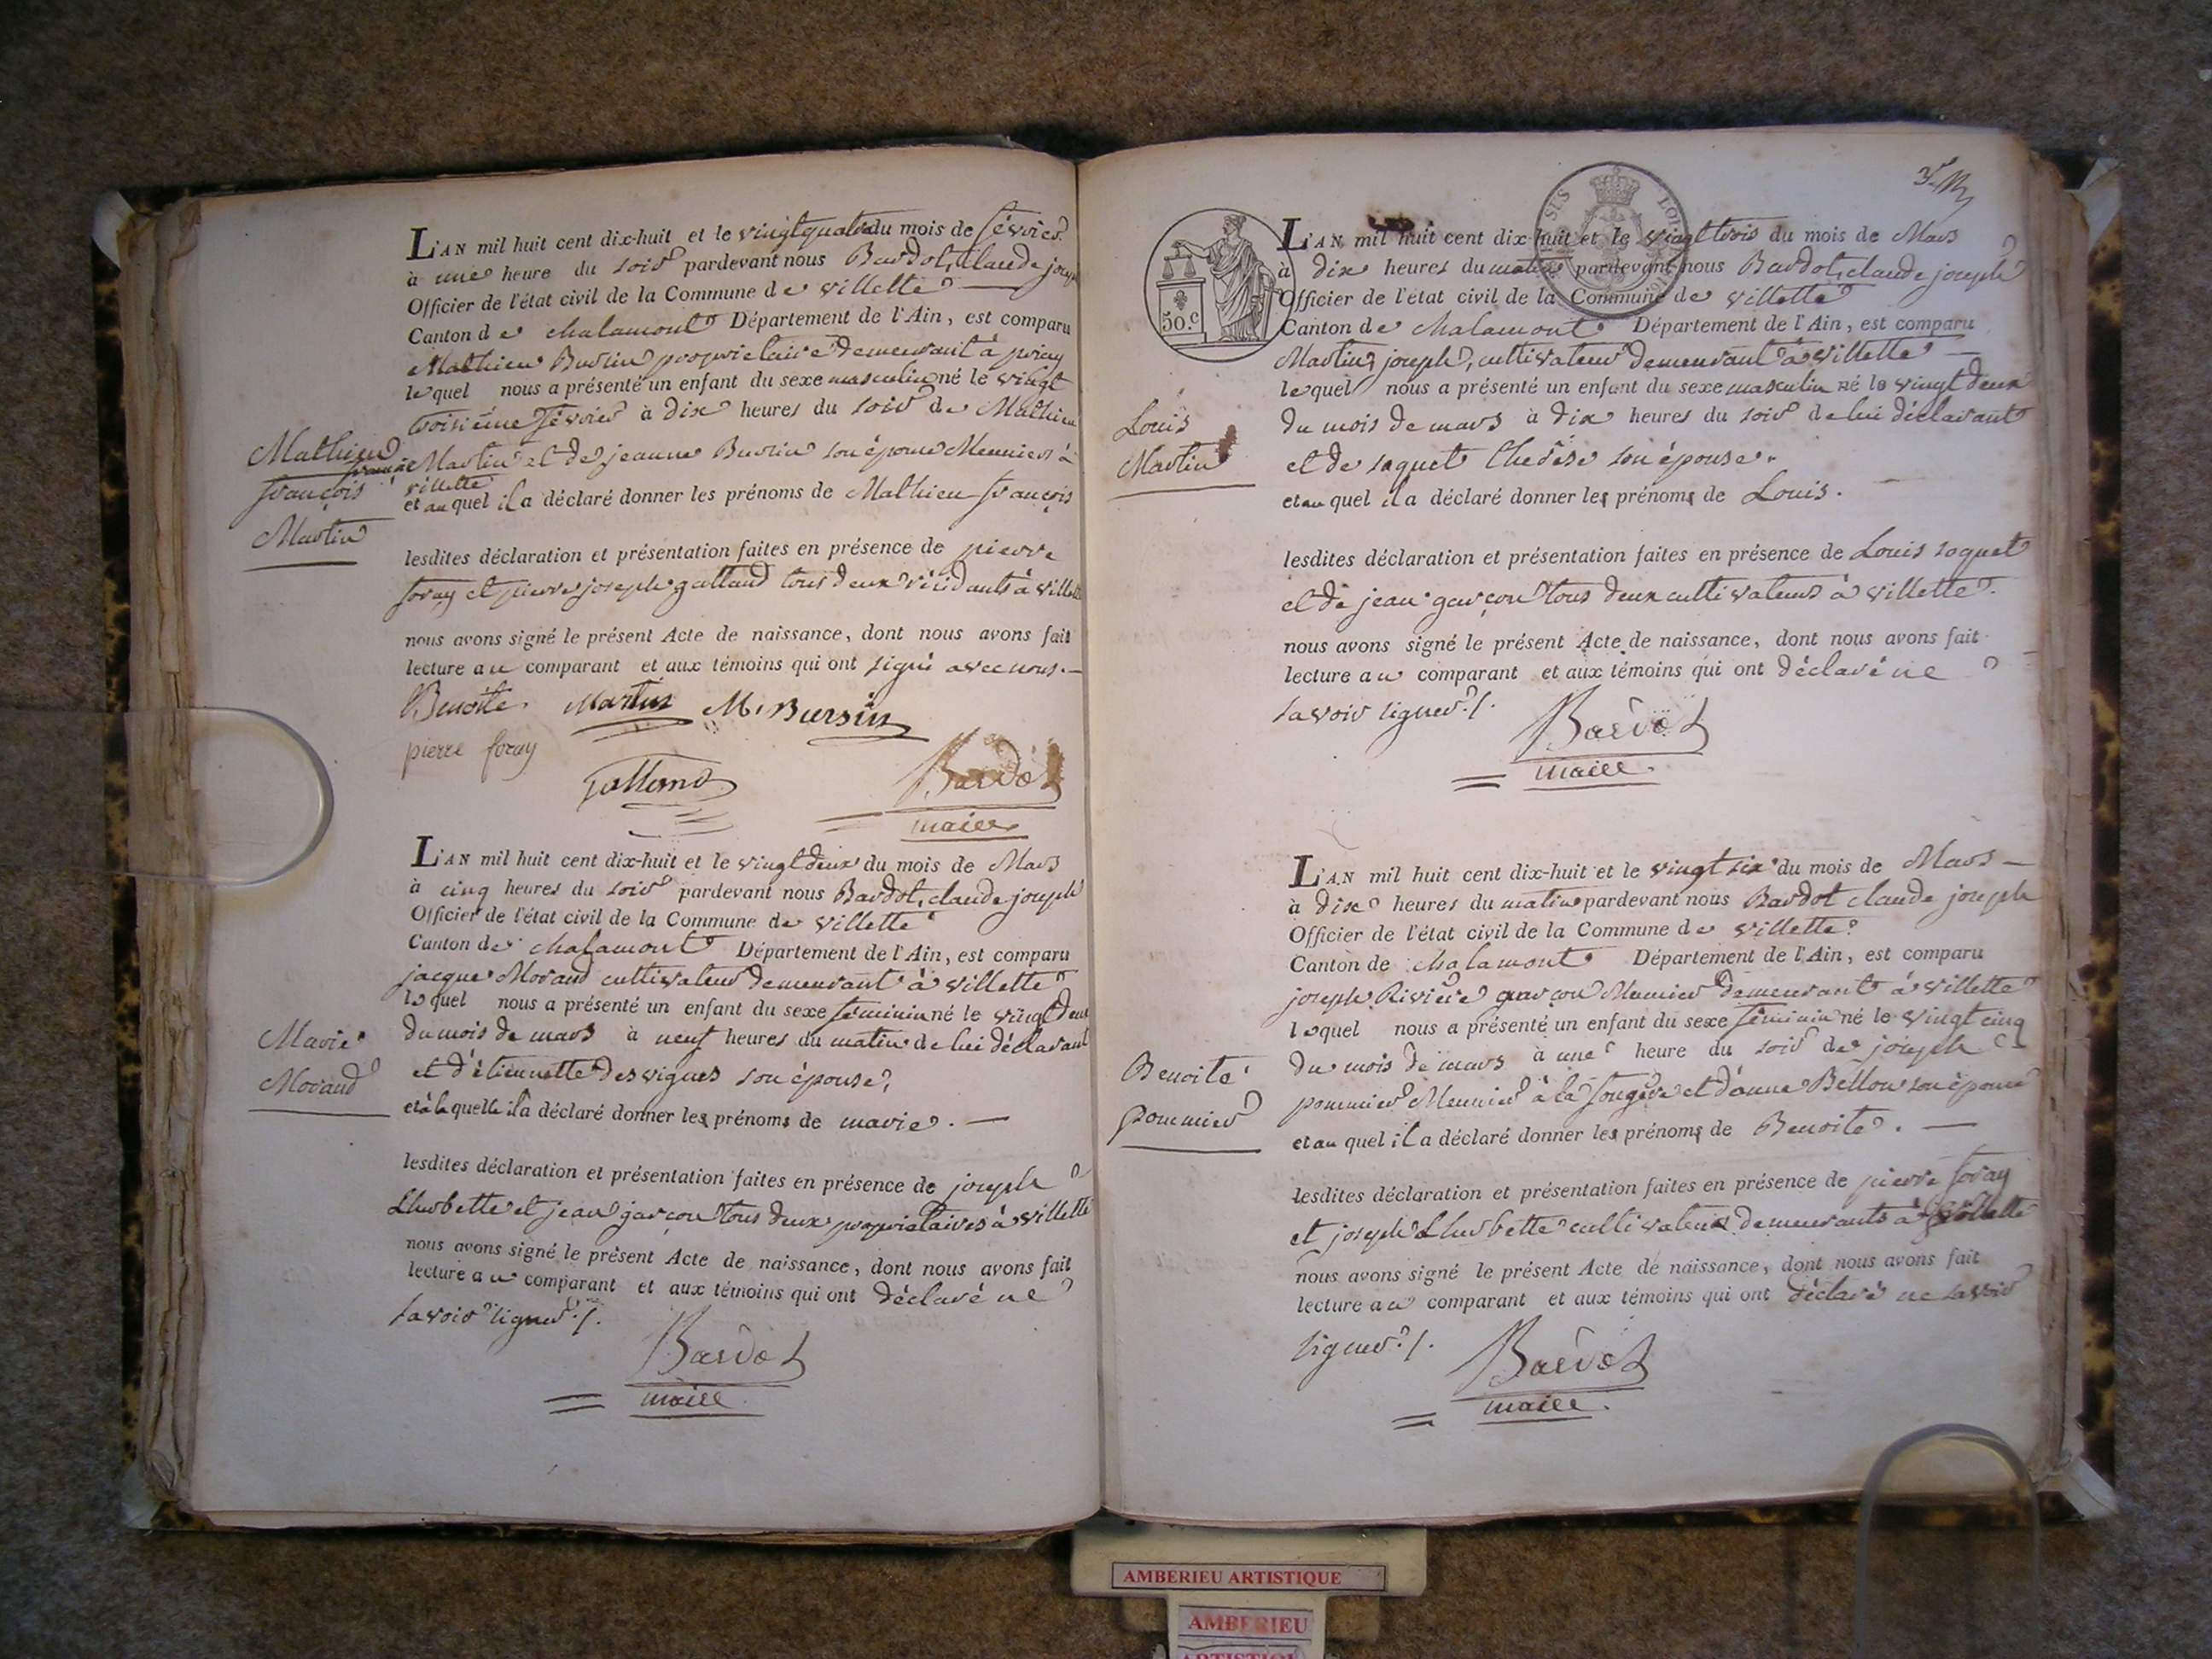 L'AN mil huit cent dix-huit et le vingt quatre du mois de février
à une heure du soir pardevant nous Bardot, Claude joseph
Officier de l'état civil de la Commune de villette
Canton de chalamont Département de l'Ain, est comparu
Mathieu Bursin proprietaire demeurant à priay
lequel nous a présenté un enfant du sexe masculin né le vingt
troisième février à dix heures du soir de Mathieu
Mathieu
françois
Martin
Martin et de jeanne Bursin son épouse Meunier à
villette
et au quel il a déclaré donner les prénoms de Mathieu françois
lesdites déclaration et présentation faites en présence de pierre
foray et pierre joseph galland tous deux résidants à villette
nous avons signé le présent Acte de naissance, dont nous avons fait
lecture au comparant et aux témoins qui ont signé avec nous.
Benoite. Martin M. Bursin
pierre foray
Galland Bardot
maire
L'AN mil huit cent dix-huit et le vingt deux du mois de Mars
à cinq heures du soir pardevant nous Bardot, claude joseph
Officier de l'état civil de la Commune de villette
Canton de chalamont Département de l'Ain, est comparu
jacque Morand cultivateur demeurant à villette
lequel nous a présenté un enfant du sexe féminin né le vingt deux
Marie
Morand
du mois de mars à neuf heures du matin de lui déclarant
et d'étiennette Desvignes son épouse,
et à la quelle il a déclaré donner les prénoms de marie.
lesdites déclaration et présentation faites en présence de joseph
Lherbette et jean garçon tous deux proprietaires à villette
nous avons signé le présent Acte de naissance, dont nous avons fait
lecture au comparant et aux témoins qui ont déclaré ne
savoir signer ./.
Bardot
maire
L'AN mil huit cent dix-huit et le vingt trois du mois de Mars
à dix heures du matin pardevant nous Bardot, claude joseph
Officier de l'état civil de la Commune de villette
50.c
Canton de chalamont Département de l'Ain, est comparu
Martin, joseph, cultivateur demeurant à villette
lequel nous a présenté un enfant du sexe masculin né le vingt deux
Louis
Martin
du mois de mars à dix heures du soir de lui déclarant
et de soquet Therèse son épouse.
et au quel il a déclaré donner les prénoms de Louis.
lesdites déclaration et présentation faites en présence de Louis soquet
et de jean garçon tous deux cultivateurs à villette.
nous avons signé le présent Acte de naissance, dont nous avons fait
lecture au comparant et aux témoins qui ont déclaré ne
savoir signer ./.
Bardot
maire.
L'AN mil huit cent dix-huit et le vingt six du mois de Mars
à dix heures du matin pardevant nous Bardot claude joseph
Officier de l'état civil de la Commune de villette
Canton de chalamont Département de l'Ain, est comparu
joseph Rivière garçon Meunier demeurant à villette
lequel nous a présenté un enfant du sexe féminin né le vingt cinq
Benoite
pommier
du mois de mars à une heure du soir de joseph
pommier Meunier à la fougère et d'anne Bellon son épouse
et au quel il a déclaré donner les prénoms de Benoite.
lesdites déclaration et présentation faites en présence de pierre foray
et joseph Lherbette cultivateurs demeurants à villette
nous avons signé le présent Acte de naissance, dont nous avons fait
lecture au comparant et aux témoins qui ont déclaré ne savoir
signer ./.
Bardot
maire.
AMBERIEU ARTISTIQUE
AMBERIEU
ARTISTIQUE